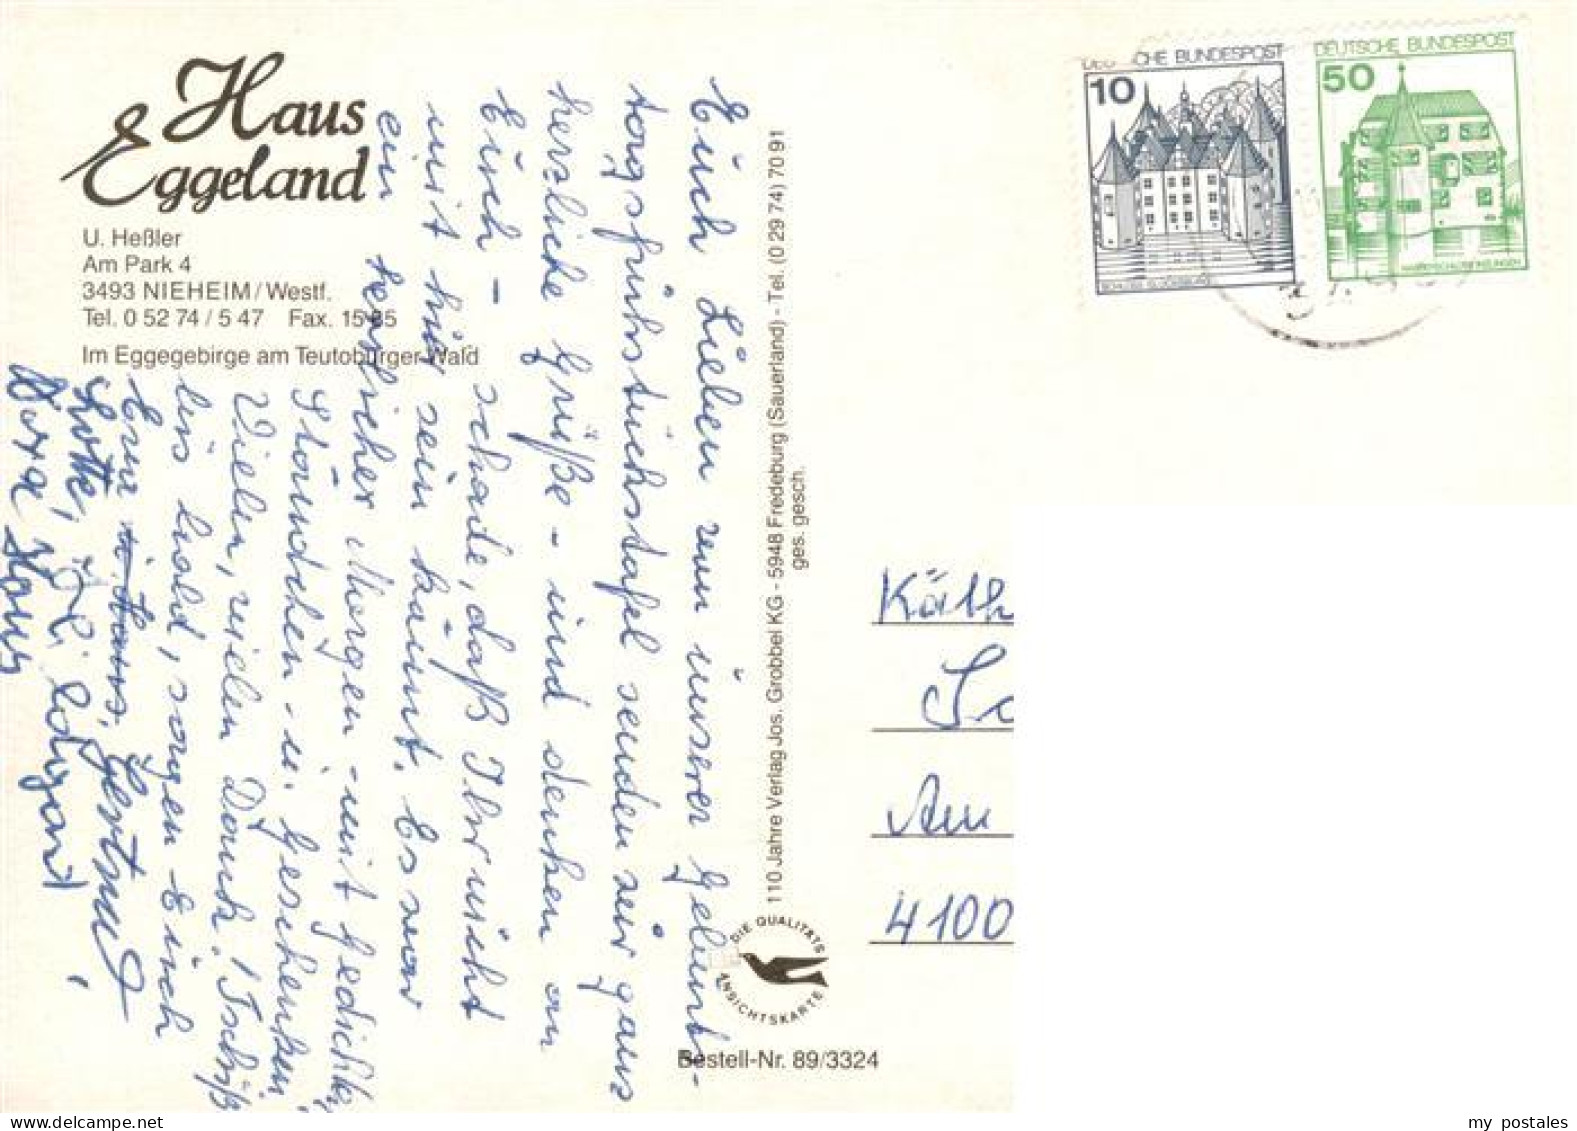 Haus
Eggeland
U. Heßler
Am Park 4
3493 NIEHEIM/Westf.
Tel. 0 52 74 / 5 47 Fax. 15 85
Im Eggegebirge am Teutoburger Wald
Euch Lieben von unserer Geburts-
tagsfrühstückstafel senden wir ganz
herzliche Grüße - und denken an
Euch - schade, daß Ihr nicht
mit hier sein könnt. Es war
ein herrlicher Morgen - mit Gedichten
Ständchen - u. Geschenken
Vielen, vielen Dank! Tschüß
bis bald, sagen Euch
Eure
Lotte, Gertrud
Edigard
Hans
110 Jahre Verlag Jos. Grobbel KG - 5948 Fredeburg (Sauerland) - Tel. (0 29 74) 70 91
ges. gesch.
DIE QUALITÄTS
ANSICHTSKARTE
Bestell-Nr. 89/3324
DEUTSCHE BUNDESPOST
10
SCHLOSS GLÜCKSBURG
DEUTSCHE BUNDESPOST
50
WASSERSCHLOSS INZLINGEN
Käth
Sc
Am
4100
my postales